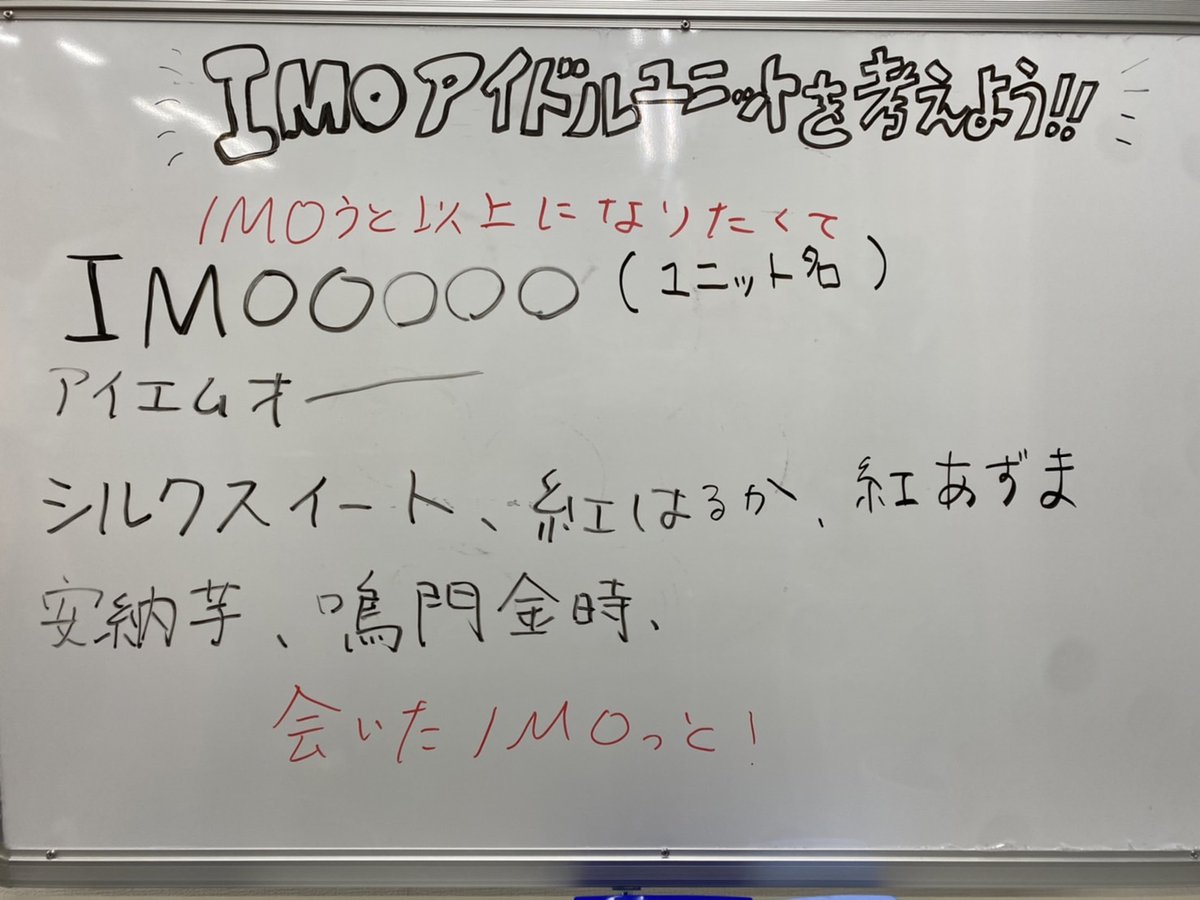 IMOアイドルユニットを考えよう!!
IMOうと以上になりたくて
IMOOOOO(ユニット名)
アイエムオー
シルクスイート、紅はるか、紅あずま
安納芋、鳴門金時、
会いたIMOっと!